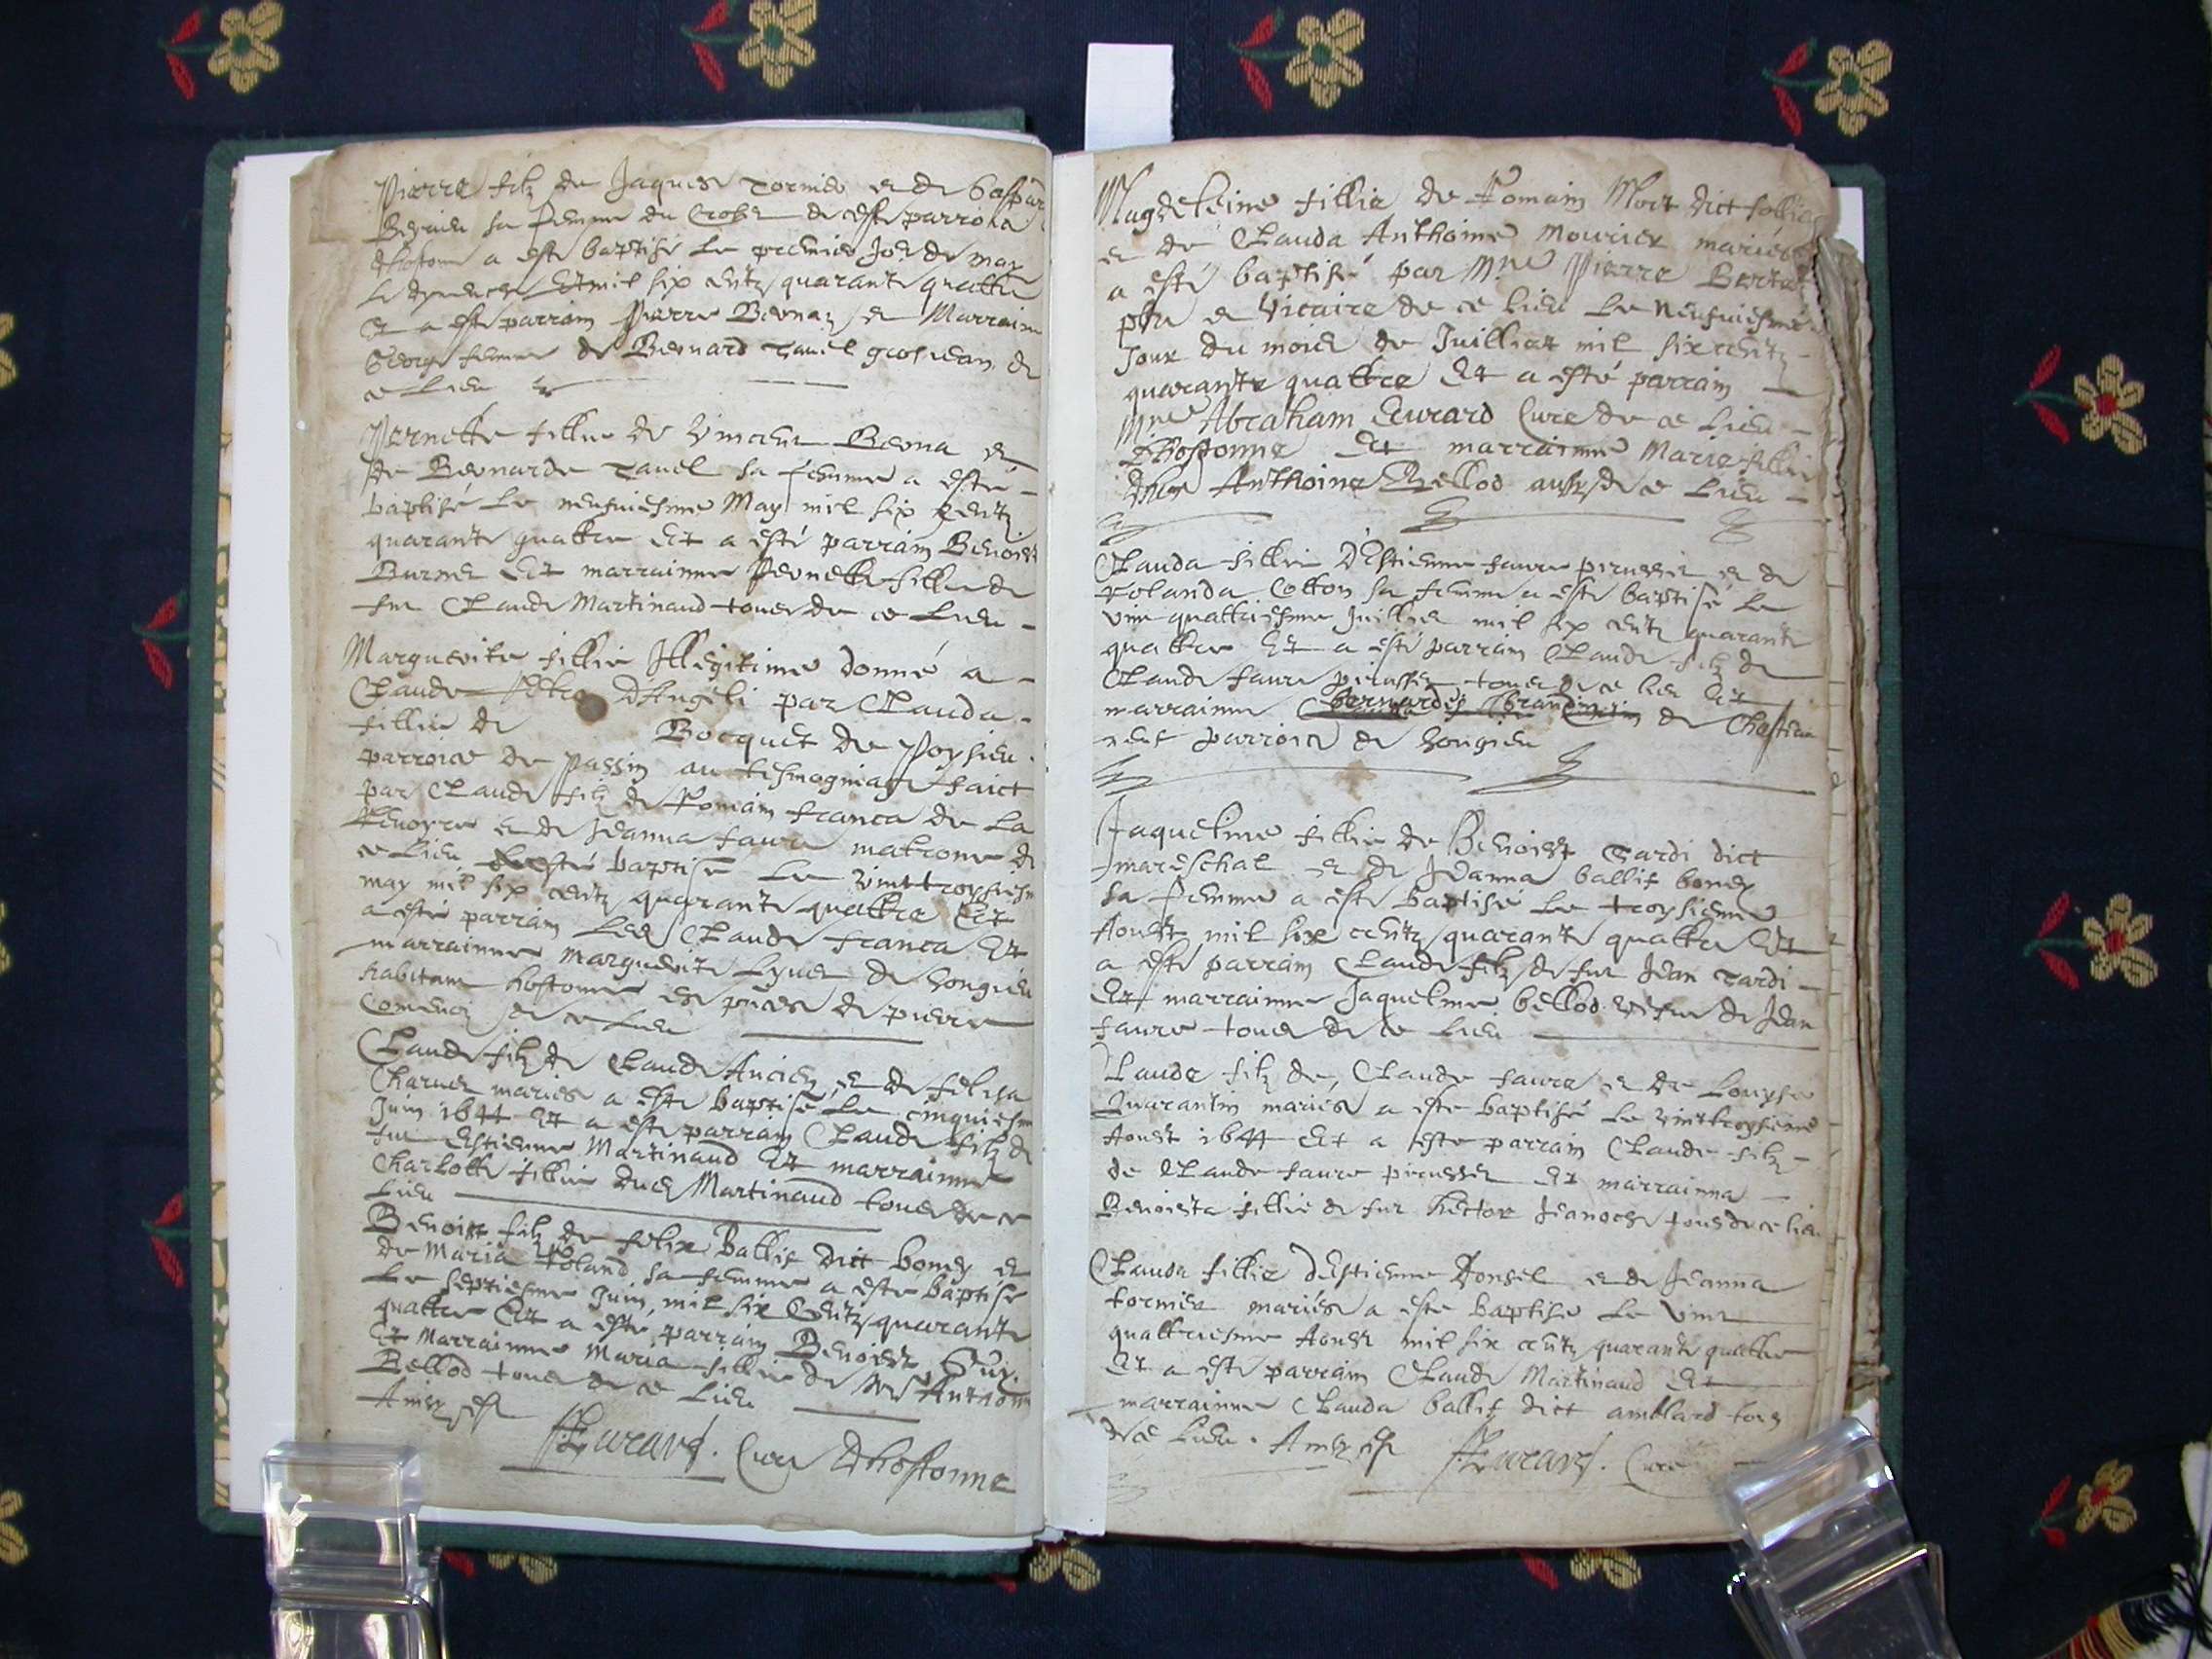 Pierre filz de Jaques Tornier et de
sa femme du de ceste parroisse
dhostonne a este baptisé le premier Jor de may
le dymenche mil six centz quarante quattre
Et a este parrain Pierre Bernaz et Marraine
George femme de Bernard Tavel grosjean de
ce Lieu
Pernette fillie de Vincent Berna et
de Bernarde Tavel sa femme a esté
baptisé le neufviesme May mil six centz
quarante quattre Et a esté parrain Benoist
Burnet Et marrainne Pernette fillie de
fut Claude Martinaud tous de ce Lieu
Marguerite fillie Illegitime donné a
Claude dAngeli par Clauda
fillie de Bocquet de Poysieu
parroice de Passin au tesmogniage faict
par Claude filz de Romain franca de la
et de Jeanna faure matrone de
ce Lieu a esté baptisé le vinttroysiesme
may mil six centz quarante quattre Et
a esté parrain led Claude franca Et
marrainne Marguerite de Songieu
habitant hostonne de pierre
de ce Lieu
Claude filz de Claude Ancien et de felisa
Charvet mariés a este baptisé le cinquiesme
Juin 1644 Et a este parrain Claude filz de
fut Estienne Martinaud Et marrainne
Charlotte fillie dud Martinaud tous de ce
Lieu
Benoist filz de felix Ballif dict bonez et
de Maria Roland sa femme a este baptisé
Le septiesme Juin, mil six Centz quarante
quattre Et a este parrain Benoist Guy
Et Marrainne Maria fillie de Me Anthoine
Bellod tous de ce Lieu
Ainsy est
Evrard. Curé Dhostonne
Magdeleine fillie de Romain Mort dict follia
et de Clauda Anthoine Mourier mariés
a esté baptisé par Mre Pierre Bertet
pbre et Vicaire de ce lieu Le Neufviesme
Jour du mois de Juilliet mil six centz
quarante quattre Et a esté parrain
Mre Abraham Evrard Curé de ce Lieu
Dhostonne Et marrainne Marie fillie
Anthoine Bellod aussy de ce Lieu
Clauda fillie D'Estienne faure perusset et de
Rolanda Cotton sa femme a este baptisé le
vint quattriesme Juillier mil six centz quarante
quattre Et a esté parrain Claude filz de
Claude faure perusset tous de ce lieu Et
marrainne bernarde de Chastian
neuf parroice de Songieu
Jaqueline fillie de Benoist Tardi dict
mareschal et de Jeanna ballif bonez
sa femme a este baptisé Le troysieme
Aoust mil six centz quarante quattre Et
a este parrain Claude filz de fut Jean Tardi
Et marrainne Jaqueline bellod vefve de Jean
faure tous de ce Lieu
Claude filz de, Claude faure et de Louyse
Quarantin mariés a este baptisé Le vinttroysieme
Aoust 1644 Et a este parrain Claude filz
de Claude faure perusset Et marrainna
Benoista fillie de fut hector Jeanoche tous de ce lieu
Clauda fillie d'Estienne Donsel et de Jeanna
tornier mariés a este baptisé le vint
quattriesme Aoust mil six centz quarante quattre
Et a este parrain Claude Martinaud Et
marrainne Clauda ballif dict amblard tous
de ce Lieu. Ainsy est Evrard. Curé